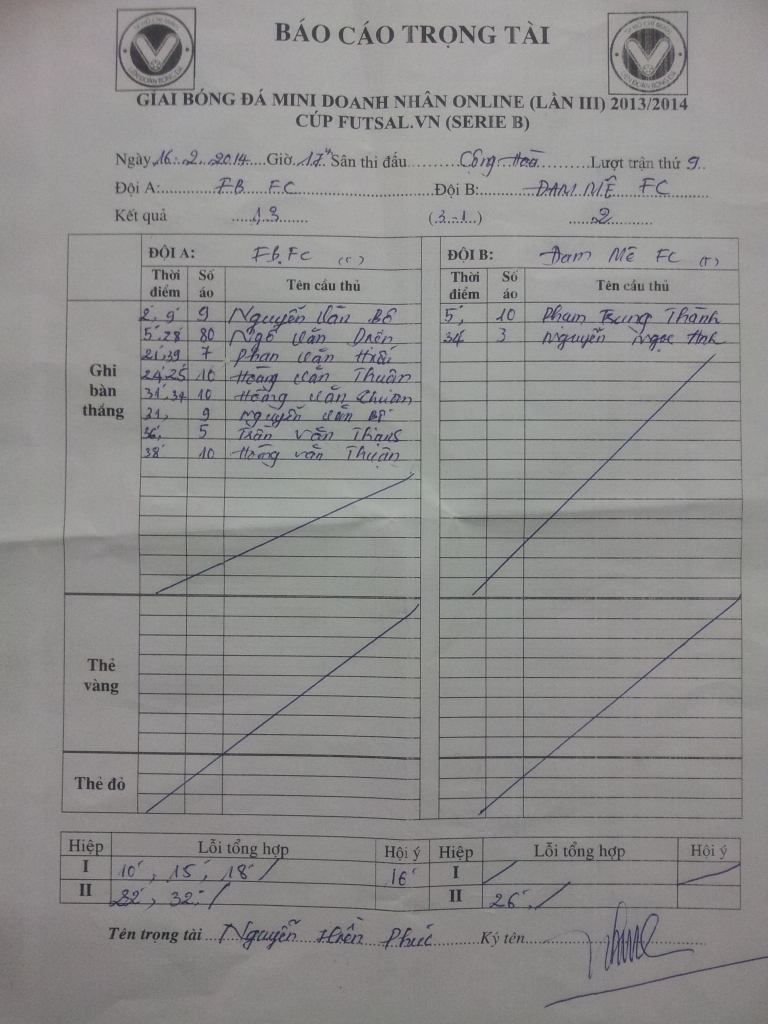 BÁO CÁO TRỌNG TÀI
GIẢI BÓNG ĐÁ MINI DOANH NHÂN ONLINE (LẦN III) 2013/2014
CÚP FUTSAL.VN (SERIE B)
Ngày 16.2.2014 Giờ 17h Sân thi đấu Cộng Hoà Lượt trận thứ 9
Đội A: FB FC Đội B: ĐAM MÊ FC
Kết quả 13 (3-1) 2
ĐỘI A: FB.FC ĐỘI B: Đam Mê FC
Thời điểm Số áo Tên cầu thủ Thời điểm Số áo Tên cầu thủ
Ghi bàn thắng
2', 9' 9 Nguyễn Văn Bê 5', 10 Phạm Trung Thành
5', 28' 80 Ngô Văn 34' 3 Nguyễn Ngọc Anh
21', 39' 7 Phan Văn
24', 25' 10 Hoàng Văn Thuận
31', 34' 10 Hoàng Văn
9 Nguyễn Văn
36', 5 Trần Văn
38' 10 Hoàng Văn Thuận
Thẻ vàng
Thẻ đỏ
Hiệp Lỗi tổng hợp Hội ý Hiệp Lỗi tổng hợp Hội ý
I 10', 15', 18' / 16' I
II 22', 32' / II 26', /
Tên trọng tài Nguyễn Hiền Phúc Ký tên